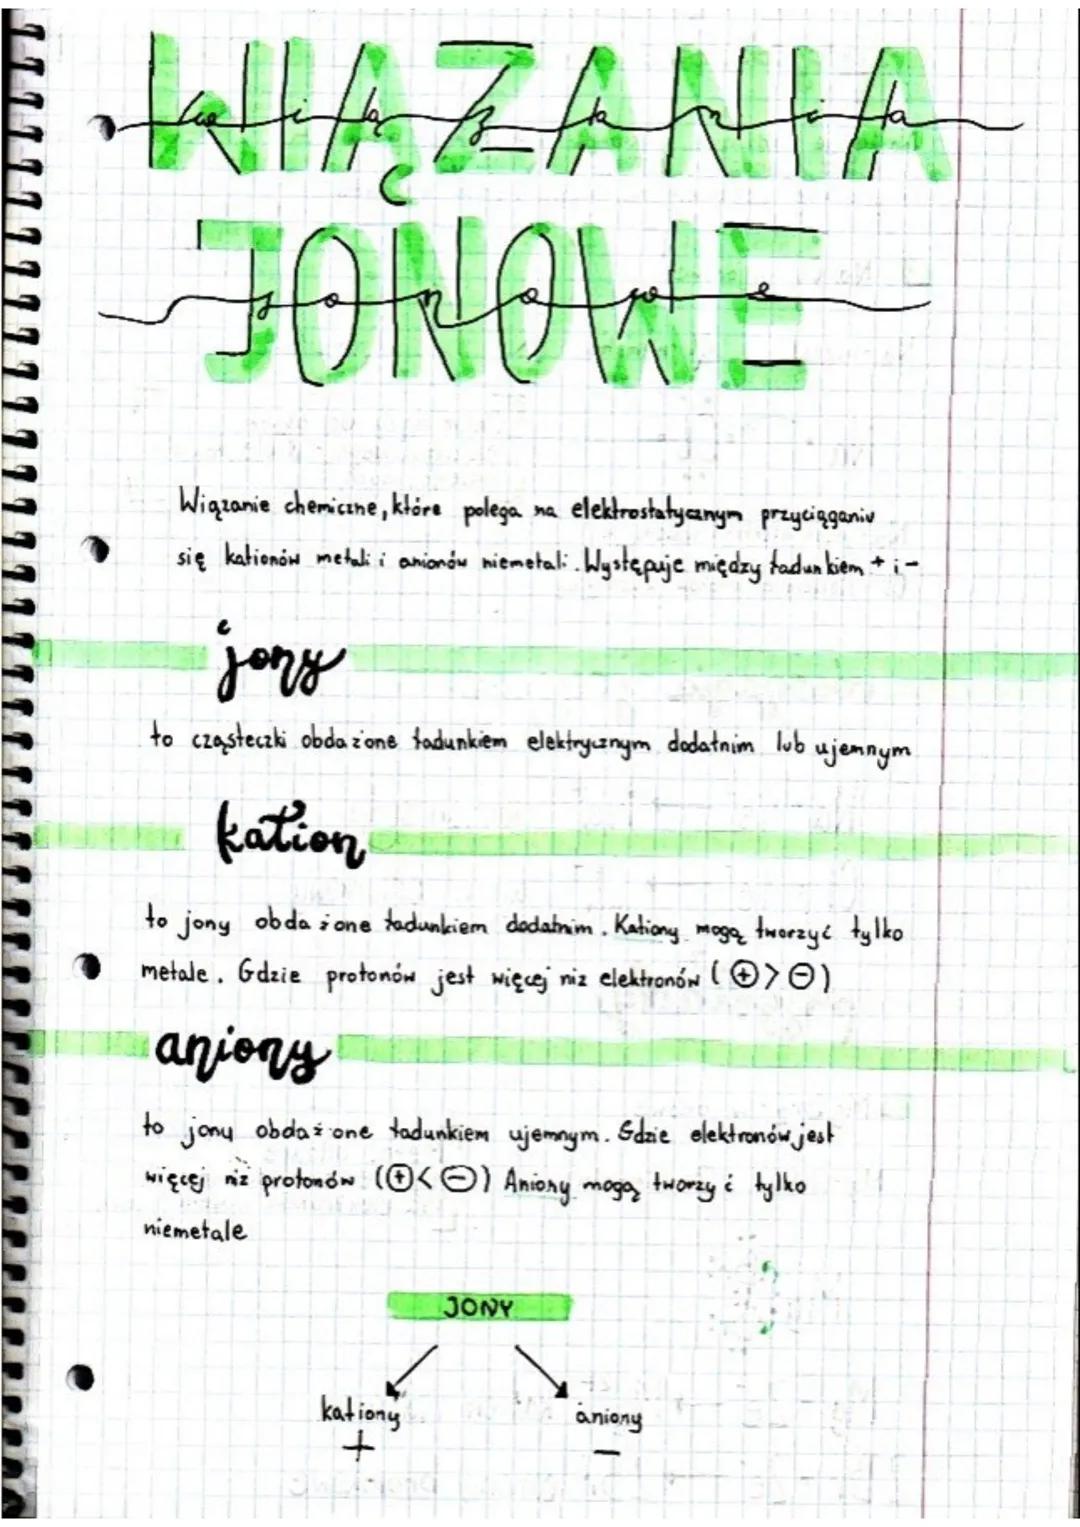 WIĄZANIA
wiązania
JONOWE
jonowe
Wiązanie chemiczne, które polega na elektrostatycznym przyciąganiu
się kationów metali i anionów niemetali. Występuje między ładunkiem + i -
jony
to cząsteczki obdażone ładunkiem elektrycznym dodatnim lub ujemnym
kation
to jony obdażone ładunkiem dodatnim. Kationy mogą tworzyć tylko
metale. Gdzie protonów jest więcej niz elektronów (⊕>⊖)
aniony
to jony obdażone ładunkiem ujemnym. Gdzie elektronów jest
więcej niz protonów (⊕<⊖) Aniony mogą tworzyć tylko
niemetale
JONY
kationy aniony
+ -